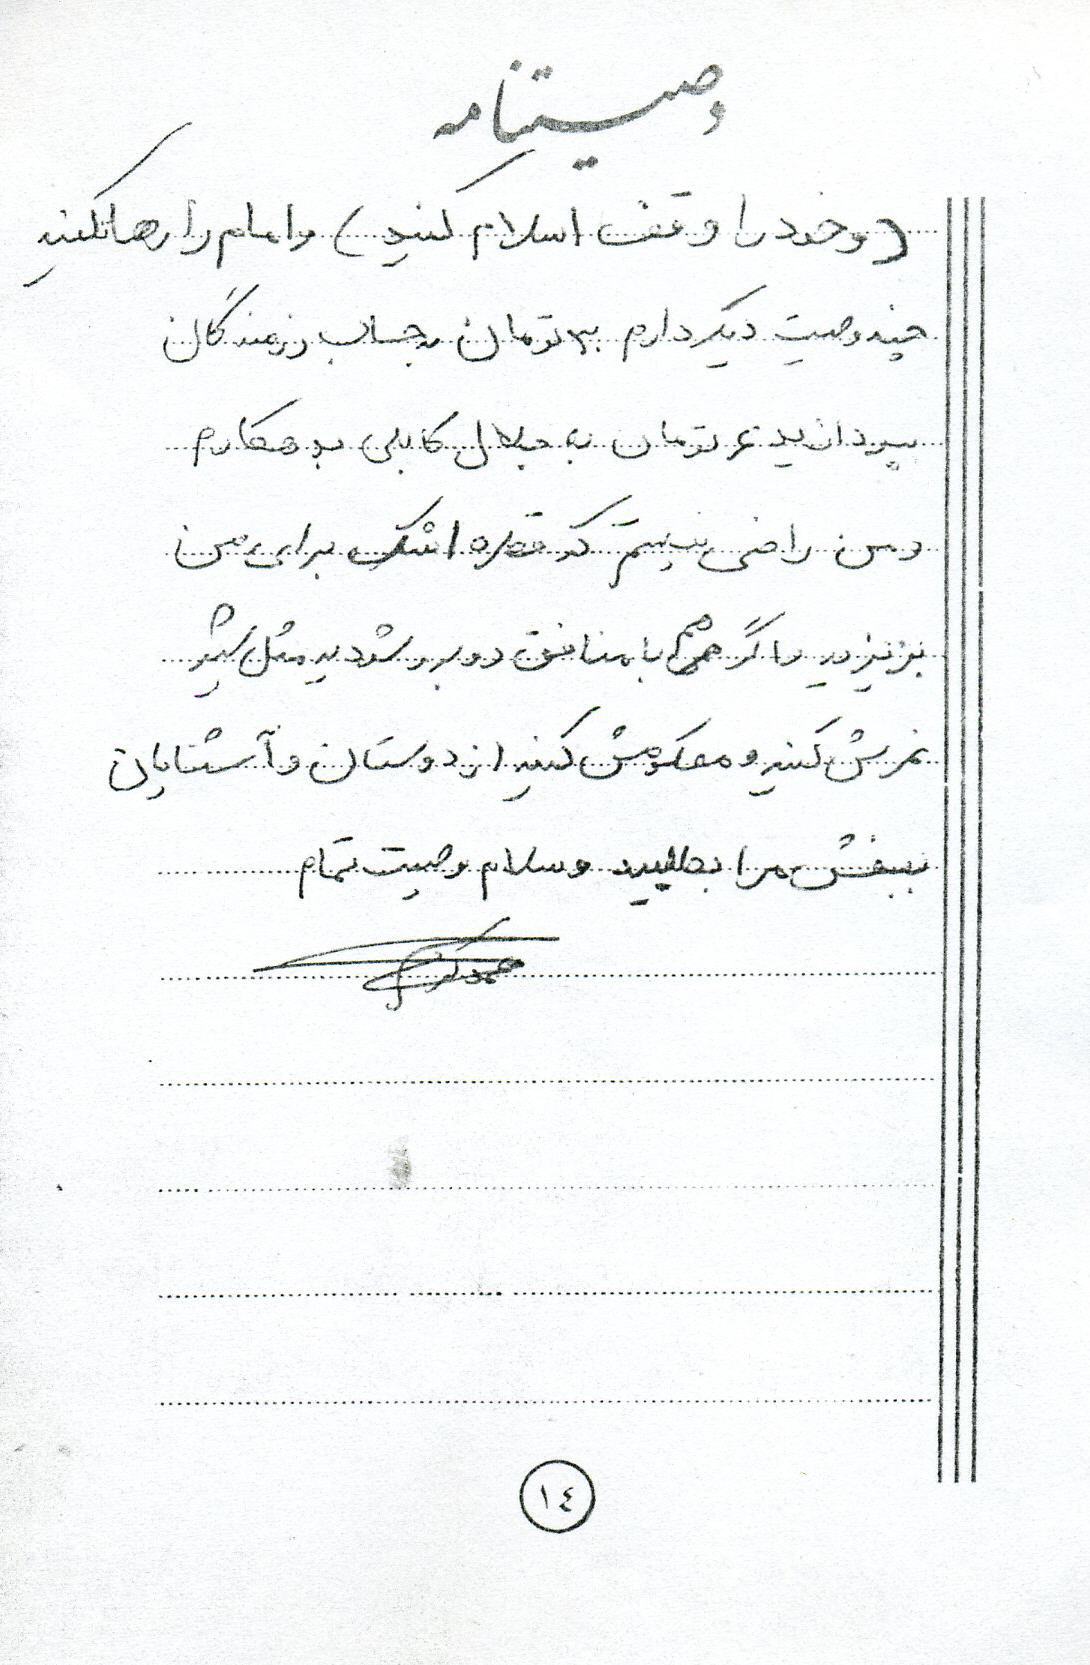 وصیتنامه
(وخود را وقف اسلام کنید) وامام را رها نکنید
چند وصیت دیگر دارم ۳۰ تومان بحساب رزمندگان
بپردازید ۶ تومان به جلال کابلی بدهکارم
ومن راضی نیستم که قطره اشک برای من
بریزید و اگر هم با منافق روبرو شدید مثل شیر
غرش کنید و محکومش کنید از دوستان و آشنایان
ببخش مرا بطلبید وسلام وصیت تمام
١٤